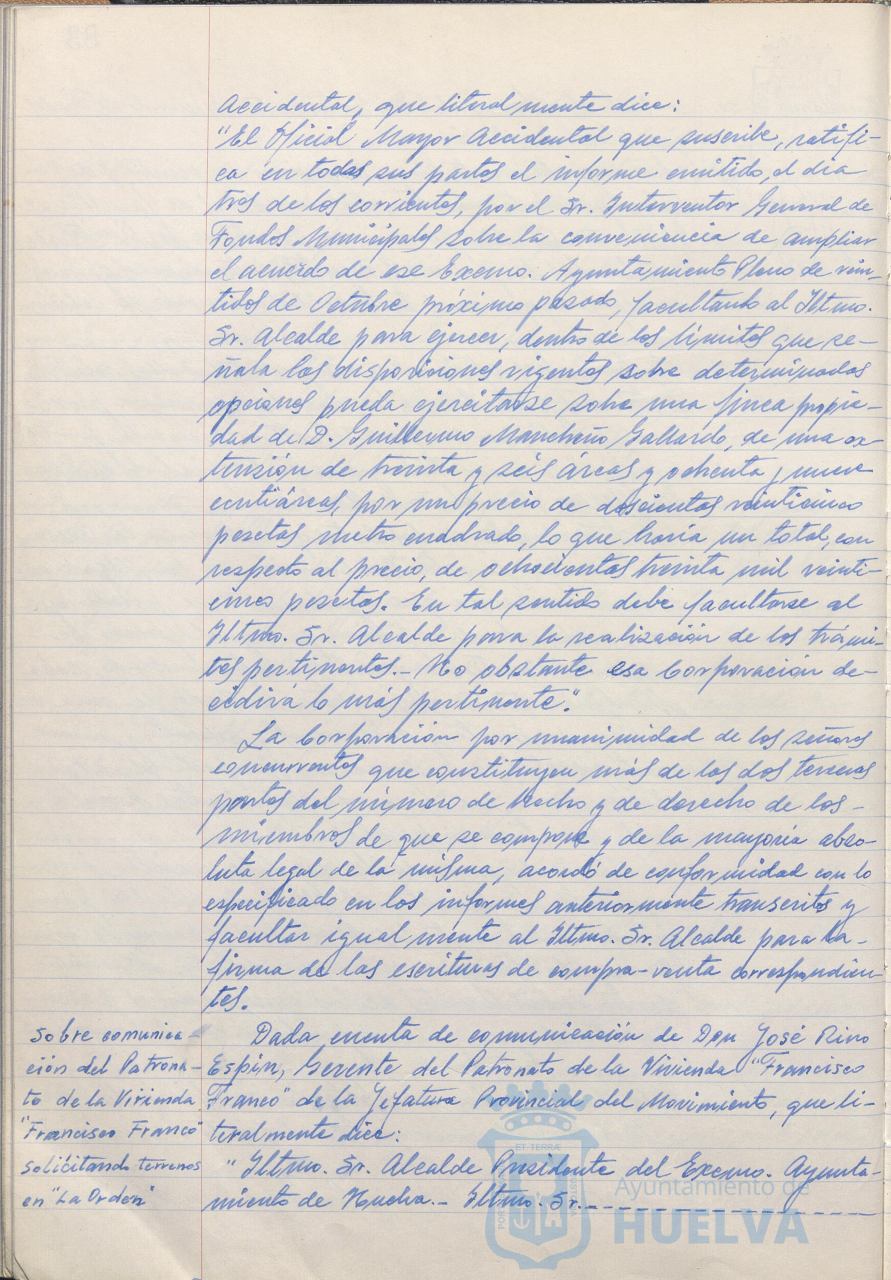 Accidental, que literalmente dice:
"El Oficial Mayor Accidental que suscribe, ratifi-
ca en todas sus partes el informe emitido, el dia
tres de los corrientes, por el Sr. Interventor General de
Fondos Municipales sobre la conveniencia de ampliar
el acuerdo de ese Excmo. Ayuntamiento Pleno de vein-
tidos de Octubre próximo pasado, facultando al Iltmo.
Sr. Alcalde para ejercer, dentro de los límites que se-
ñala las disposiciones vigentes sobre determinadas
opciones pueda ejercitarse sobre una finca propie-
dad de D. Guillermo Mancheño Gallardo, de una ex-
tensión de treinta y seis áreas y ochenta y nueve
centiáreas, por un precio de doscientas veinticinco
pesetas metro cuadrado, lo que haría un total, con
respecto al precio, de ochocientas treinta mil veinti-
cinco pesetas. En tal sentido debe facultarse al
Iltmo. Sr. Alcalde para la realización de los trámi-
tes pertinentes.- No obstante esa Corporación de-
cidirá lo más pertinente."
La Corporación por unanimidad de los señores
concurrentes que constituyen más de las dos terceras
partes del número de hecho y de derecho de los -
miembros de que se compone y de la mayoría abso-
luta legal de la misma, acordó de conformidad con lo
especificado en los informes anteriormente transcritos y
facultar igualmente al Iltmo. Sr. Alcalde para la -
firma de las escrituras de compra-venta correspondien-
tes.
Sobre comunica-
ción del Patrona-
to de la Vivienda
"Francisco Franco"
solicitando terrenos
en "La Orden"
Dada cuenta de comunicación de Don José Pino
Espín, Gerente del Patronato de la Vivienda "Francisco
Franco" de la Jefatura Provincial del Movimiento, que li-
teralmente dice:
"Iltmo. Sr. Alcalde Presidente del Excmo. Ayunta-
miento de Huelva.- Iltmo. Sr.-
ET TERRA
Ayuntamiento de
HUELVA